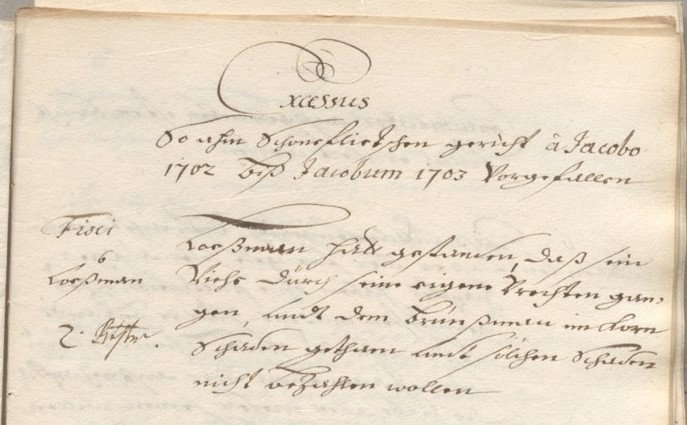 Excessus
So ahm Schonefliethschen gericht à Jacobo
1702 biß Jacobum 1703 Vorgefallen
Fisci
Loeßman
Loeßman hatt gestanden, daß sein
Viehe dürch seine eigene Vrechten gan,
gen, undt dem Brünßman im Korn
Schaden gethaen undt sölchen Schaden
nicht bezahlen wollen
2.